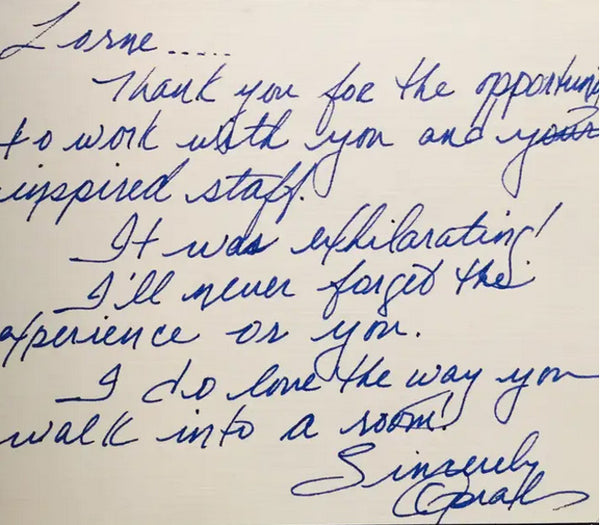 Lorne......
Thank you for the opportuni
to work with you and your
inspired staff.
It was exhilarating!
I'll never forget the
experience or you.
I do love the way you
walk into a room!
Sincerely
Oprah